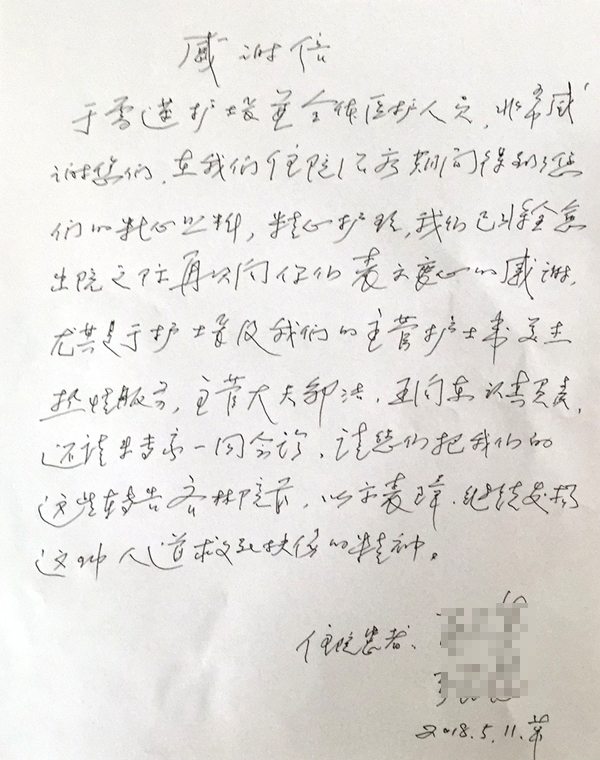 感谢信
于雪莲护士长并全体医护人员,非常感
谢您们,在我们住院治疗期间得到您
们的精心照料,精心护理,我们已痊愈
出院之际再次向你们表示衷心的感谢,
尤其是于护士长及我们的主管护士常美杰
热情服务,主管大夫邹洁,王向东认真负责,
还请来专家一同会诊,请您们把我们的
这些转告林院长,以示表彰.继续发扬
这种人道救死扶伤的精神。
住院患者、
2018.5.11.